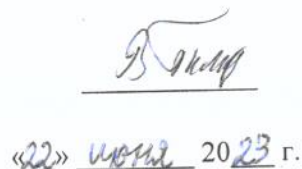 «22» июня 2023 г.